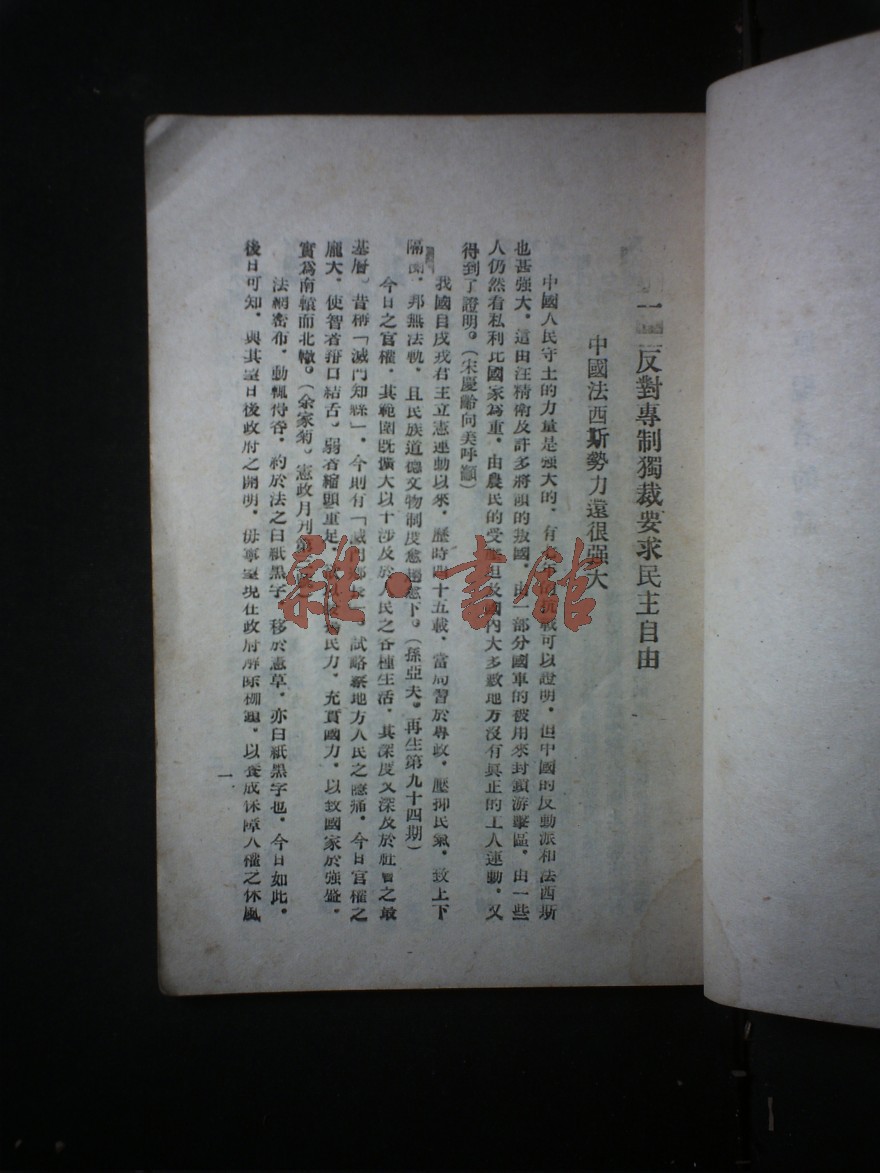 一 反對專制獨裁要求民主自由
中國法西斯勢力還很强大
中國人民守土的力量是强大的，有 可以證明，但中國的反動派和法西斯
也甚强大，這由汪精衛及許多將領的叛國，由一部分國軍的被用來封鎖游擊區，由一些
人仍然看私利比國家為重，由農民的受壓迫及國內大多數地方沒有眞正的工人運動，又
得到了證明。（宋慶齡向美呼籲）
我國自戊戌君主立憲運動以來，歷時四十五載，當局習於專政，壓抑民氣，致上下
隔閡，邦無法軌，且民族道德文物制度愈趨愈下。（孫亞夫。再生第九十四期）
今日之官權，其範圍旣擴大以干涉及於人民之各種生活，其深度又深及於社會之最
基層。昔稱「滅門知縣」，今則有「滅門鄉長」，試略察地方人民之隱痛，今日官權之
龐大，使智者箝口結舌，弱者縮頸重足， 民力，充實國力，以致國家於强盛，
實為南轅而北轍。（余家菊。憲政月刊第
法網密布，動輒得咎，約於法之白紙黑字，移於憲草，亦白紙黑字也，今日如此，
後日可知，與其望日後政府之開明，毋寧望現在政府解除桎梏，以養成保障人權之休風
一
雜·書館